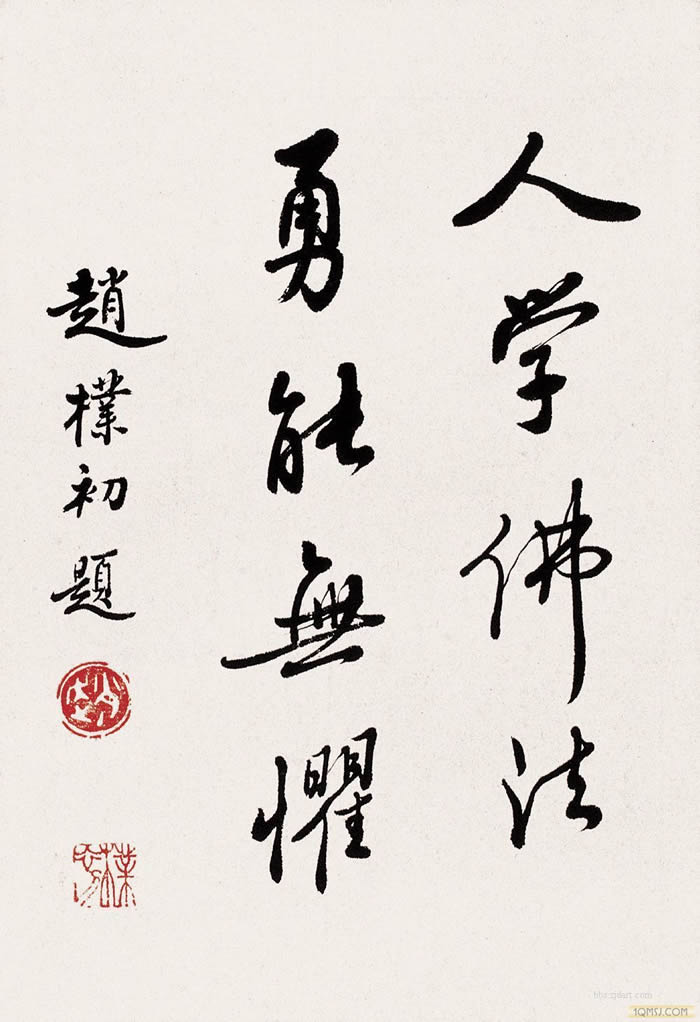 人学佛法
勇能無懼
趙樸初題
bbs.zdart.com
1QMSJ.COM